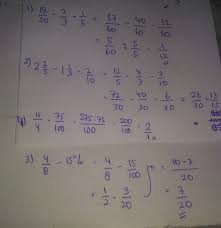 1) 19/20 - 2/3 - 1/5 = 57/60 - 40/60 - 12/60
= 5/60 = 5/5 = 1/12
2) 2 2/5 - 1 1/3 - 2/10 = 12/5 - 4/3 - 2/10
= 72/30 - 40/30 - 6/30 = 26/30 = 13/15
4) 11/4 - 75/100 = 275-75/100 = 200/100 = 2/1 "
3) 4/8 - 15% = 4/8 - 15/100 = 10-3/20
= 1/2 - 3/20 = 7/20